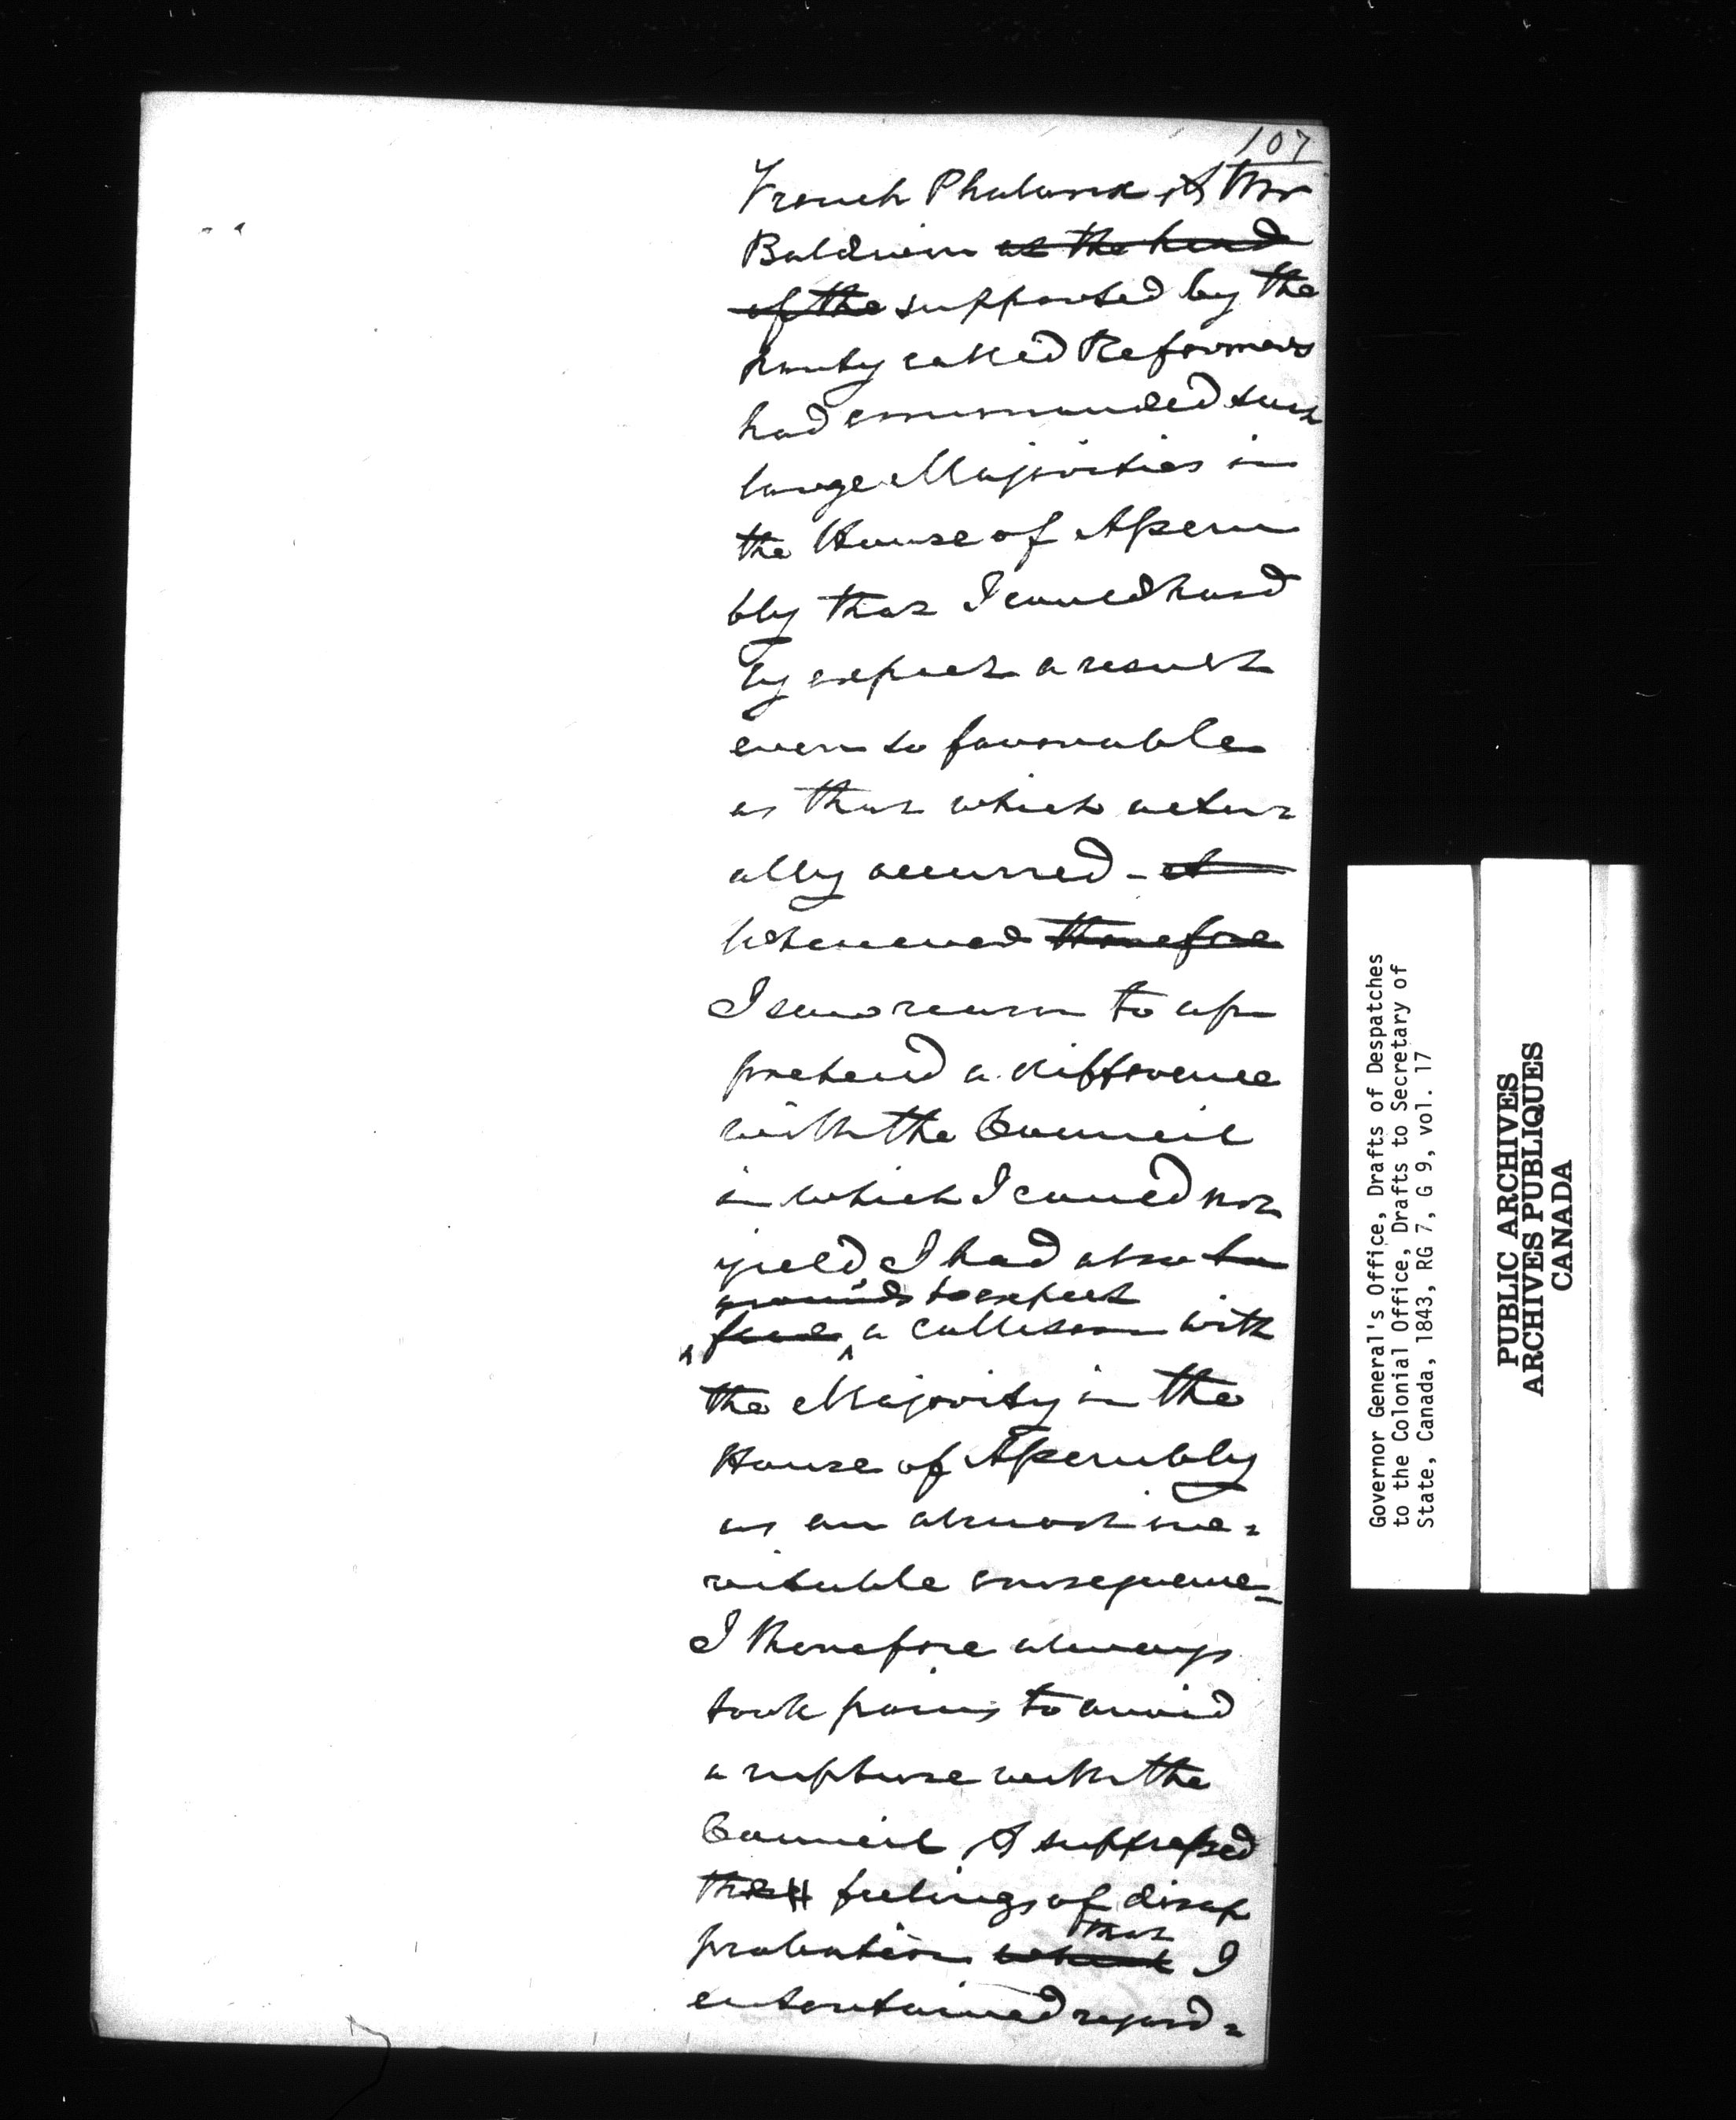 107
French Phalanx, & Mr
Baldwin at the head
of the supported by the
party called Reformers
had commanded such
large Majorities in
the House of Assem
bly that I could hard
ly expect a result
even so favorable
as that which actu=
ally occurred - &
Whenever therefore
I saw reason to ap
prehend a difference
with the Council
in which I could not
yield I had also to
grounds to expect
a collision with
the Majority in the
House of Assembly
as an almost ine=
vitable consequence_
I therefore always
took pains to avoid
a rupture with the
Council, & suppressed
the feelings of disap
that
probation which I
entertained regard=
Governor General's Office, Drafts of Despatches
to the Colonial Office, Drafts to Secretary of
State, Canada, 1843, RG 7, G 9, vol. 17
PUBLIC ARCHIVES
ARCHIVES PUBLIQUES
CANADA